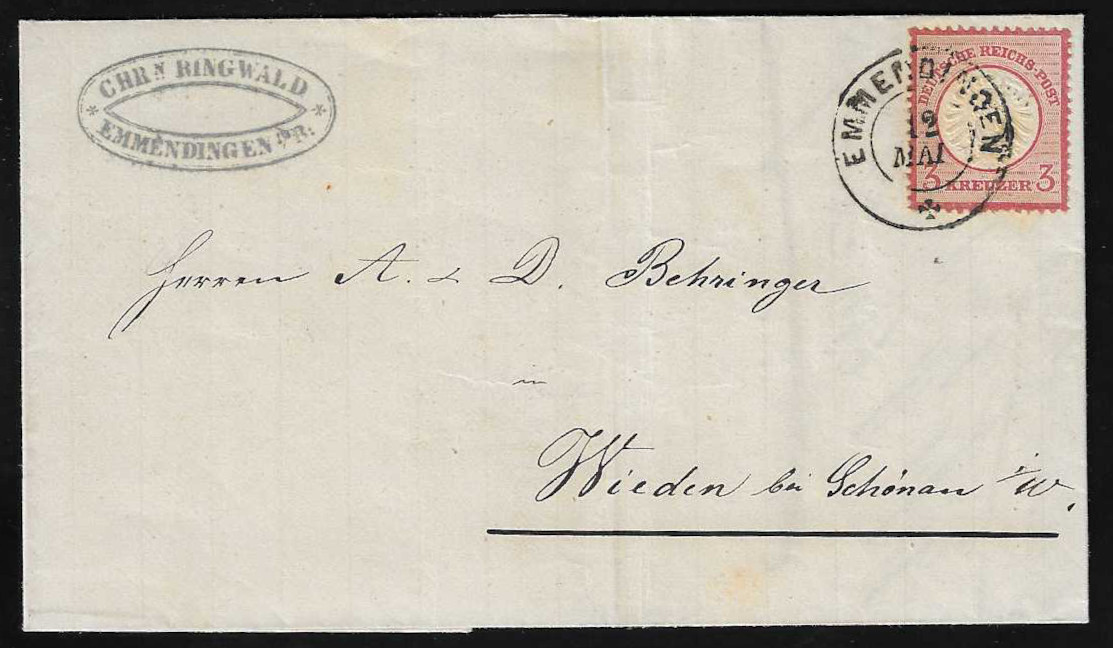 CHRN RINGWALD
EMMENDINGEN
DEUTSCHE REICHS-POST
3 KREUZER 3
EMMENDINGEN
12
MAI
Herren A. & D. Behringer
in
Wieden bei Schönau i/W.